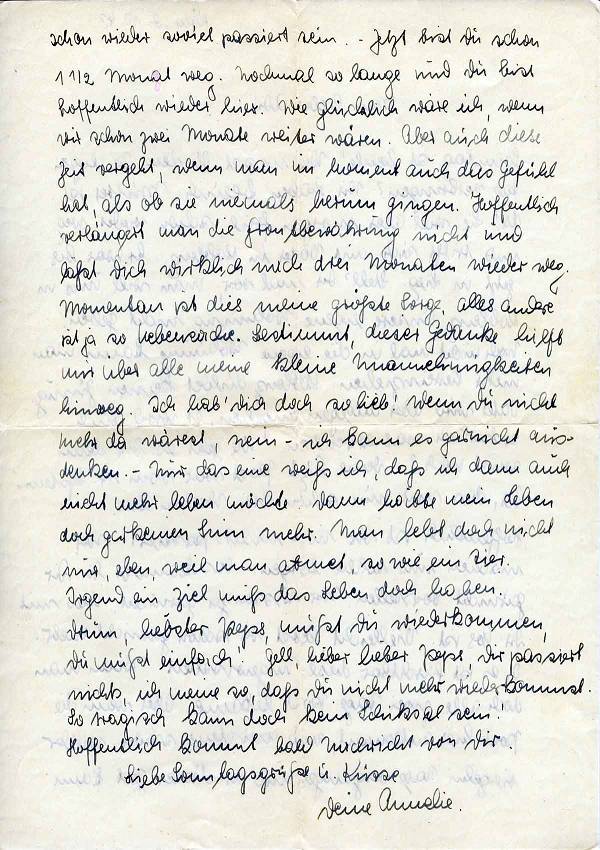 schon wieder soviel passiert sein. - Jetzt bist Du schon
1 1/2 Monat weg. Nochmal so lange und du bist
hoffentlich wieder hier. Wie glücklich wäre ich, wenn
wir schon zwei Monate weiter wären. Aber auch diese
Zeit vergeht, wenn man im Moment auch das Gefühl
hat, als ob sie niemals herum gingen. Hoffentlich
verlängert man die Frontbewährung nicht und
läßt Dich wirklich nach drei Monaten wieder weg.
Momentan ist dies meine größte Sorge, alles andere
ist ja so nebensächl. Bestimmt, dieser Gedanke hilft
mir über alle meine kleine Unannehmlichkeiten
hinweg. Ich hab' dich doch so lieb! Wenn Du nicht
mehr da wärest, nein - ich kann es garnicht aus-
denken. - Nur das eine weiß ich, daß ich dann auch
nicht mehr leben möchte. Dann hätte mein Leben
doch gar keinen Sinn mehr. Man lebt doch nicht
nur, eben, weil man atmet, so wie ein Tier.
Irgend ein Ziel muß das Leben doch haben.
Drum, liebster Peps, mußt Du wiederkommen,
Du mußt einfach! Gell, lieber lieber Peps, Dir passiert
nichts, ich meine so, daß Du nicht mehr wiederkommst.
So tragisch kann doch kein Schiksal sein!
Hoffentlich kommt bald Nachricht von Dir.
Liebe Sonntagsgrüße u. Küsse
Deine Annelie.